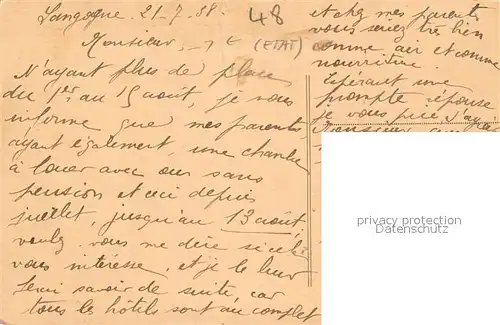 Langogne, 21-7-38.
48
Monsieur,
(ETAT)
N'ayant plus de place
du 1er au 15 août, je vous
informe que mes parents
ayant également, une chambre
à louer avec ou sans
pension et ceci depuis
juillet, jusqu'au 13 août
voulez vous me dire si cela
vous intéresse, et je le leur
ferai savoir de suite, car
tous les hôtels sont au complet
et chez mes parents
vous seriez très bien
comme air et comme
nourriture.
Espérant une
prompte réponse
je vous prie d'agréer
Monsieur
privacy protection
Datenschutz